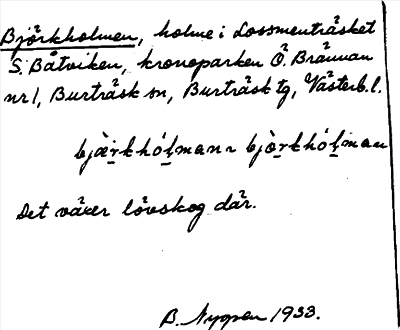 Björkholmen, holme i Lossmenträsket
S. Båtviken, kronoparken Ö. Brännan
nr 1, Burträsk sn, Burträsk tg, Västerb. l.
bjær̠khól̠mann bjòr̠khól̠man
Det växer lövskog där.
B. Nygren 1933.